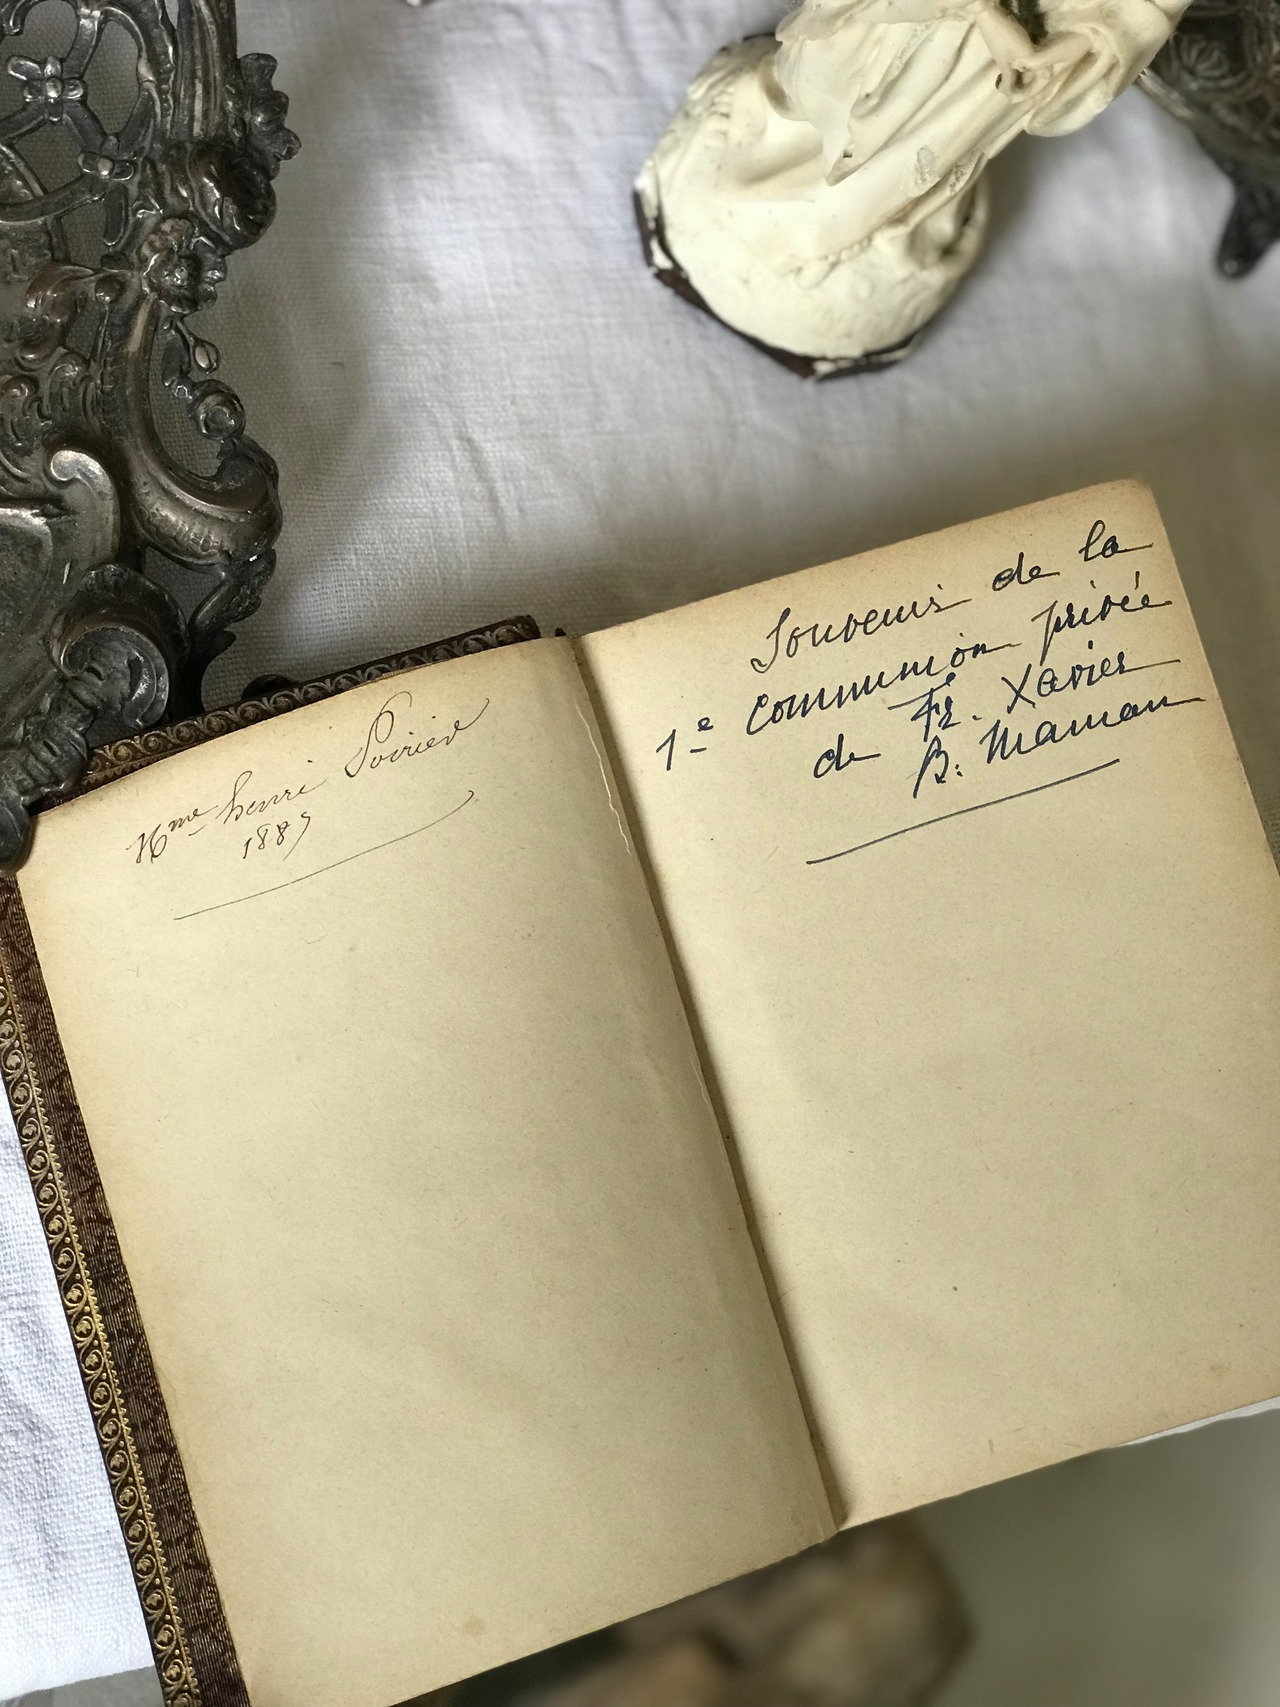 Mme henri Poirier
1887
Souvenir de la
1e communion privée
de Fr. Xavier
B. Maman